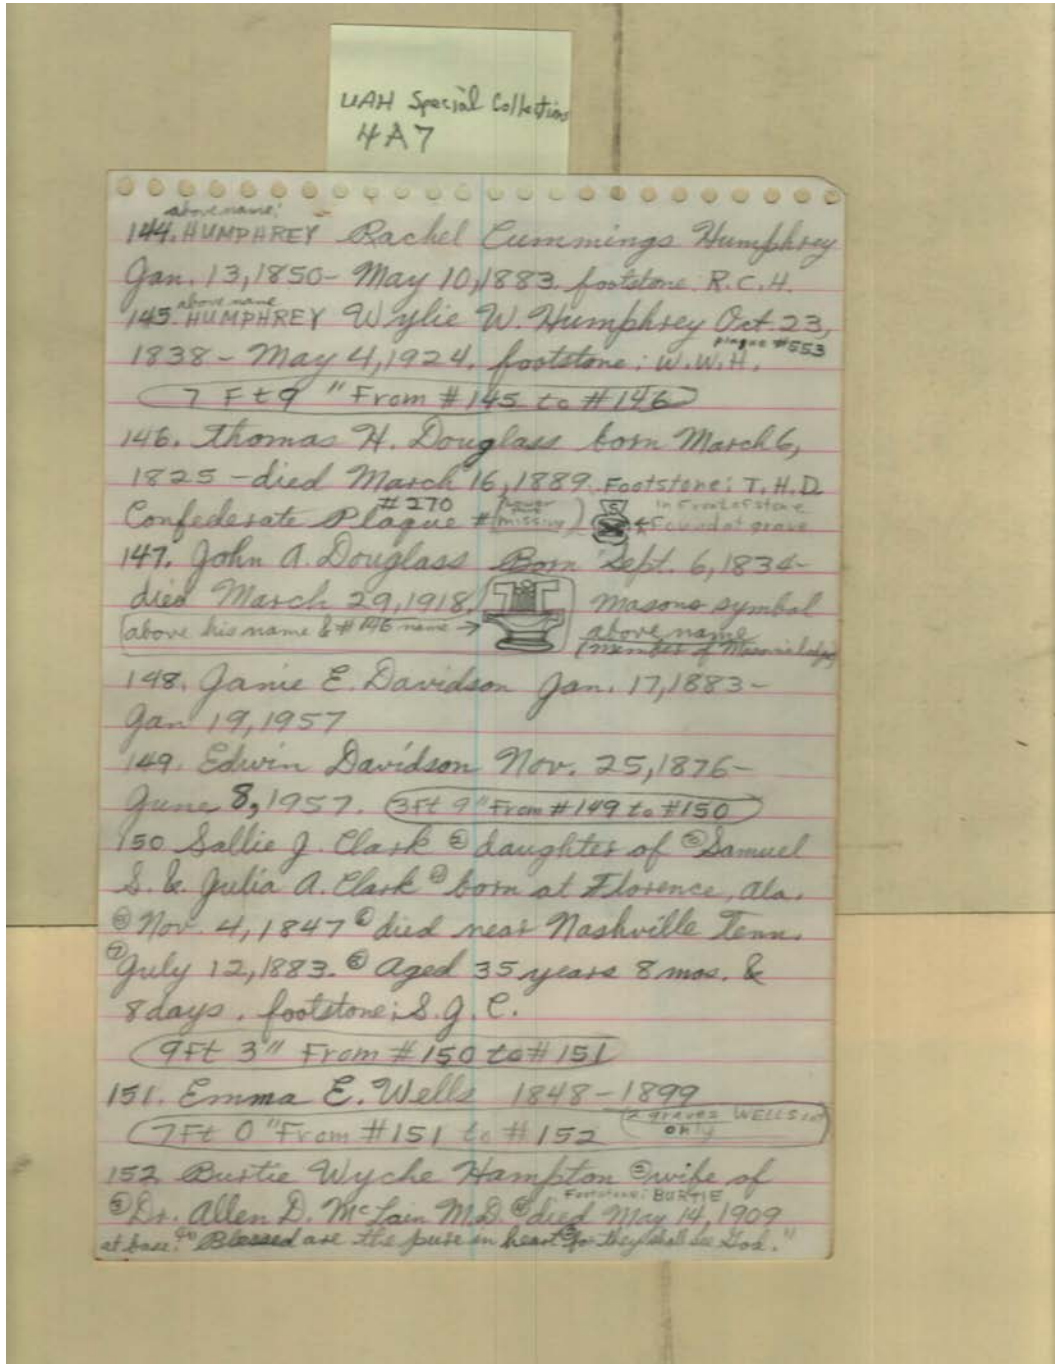 UAH Special Collections
4A7
above name:
144. HUMPHREY Rachel Cummings Humphrey
Jan. 13, 1850 - May 10, 1883. footstone: R.C.H.
above name
145. HUMPHREY Wylie W. Humphrey Oct. 23,
plaque #553
1838 - May 4, 1924. footstone: W.W.H.
7 Ft 9" From #145 to #146
146. Thomas H. Douglass born March 6,
1825 - died March 16, 1889. Footstone: T.H.D.
#270 in front of stone
Confederate Plaque # missing Found at grave
147. John A. Douglass Born Sept. 6, 1834-
died March 29, 1918. Masons symbol
above his name & #146 name → above name
(member of Masonic lodge)
148. Janie E. Davidson Jan. 17, 1883-
Jan 19, 1957
149. Edwin Davidson Nov. 25, 1876-
June 8, 1957. 3Ft 9" From #149 to #150
150 Sallie J. Clark ② daughter of ③ Samuel
S. & Julia A. Clark ④ born at Florence, Ala.
⑤ Nov. 4, 1847 ⑥ died near Nashville Tenn.
⑦ July 12, 1883. ⑧ Aged 35 years 8 mos. &
8 days. footstone: S.J.C.
9Ft 3" From #150 to #151
151. Emma E. Wells 1848-1899
7Ft 0" From #151 to #152 2 graves WELLS lot
only
152 Burtie Wyche Hampton ② wife of
Footstone: BURTIE
③ Dr. Allen D. McLain M.D. ④ died May 14, 1909
at base: "Blessed are the pure in heart for they shall see God."